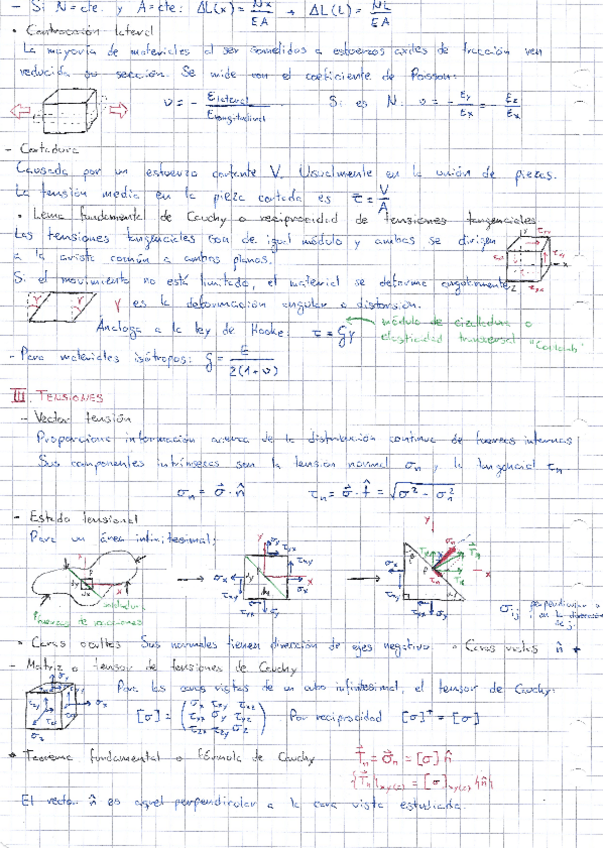 - Si N=cte. y A=cte: ΔL(x) = Nx/EA → ΔL(L) = NL/EA
• Contracción lateral
La mayoría de materiales al ser sometidos a esfuerzos axiles de tracción ven
reducida su sección. Se mide con el coeficiente de Poisson:
υ = - εlateral/εlongitudinal Si es N: υ = - εy/εx = - εz/εx
- Cortadura
Causada por un esfuerzo cortante V. Usualmente en la unión de piezas.
La tensión media en la pieza cortada es τ = V/A
• Lema fundamental de Cauchy o reciprocidad de tensiones tangenciales
Las tensiones tangenciales son de igual módulo y ambas se dirigen
a la arista común a ambos planos.
Si el movimiento no está limitado, el material se deforma angularmente
γ es la deformación angular o distorsión.
Análoga a la ley de Hooke: τ = Gγ módulo de cizalladura o
elasticidad transversal
- Para materiales isótropos: G = E/2(1+υ)
III. TENSIONES
- Vector tensión
Proporciona información acerca de la distribución continua de fuerzas internas
Sus componentes intrínsecas son la tensión normal σn y la tangencial τn
σn = σ⃗ · n̂ τn = σ⃗ · t̂ = √(σ² - σn²)
- Estado tensional
Para un área infinitesimal:
σij perpendicular a i en la dirección de j
• Caras ocultas Sus normales tienen dirección de ejes negativa. • Caras vistas n̂ +
- Matriz o tensor de tensiones de Cauchy
Para las caras vistas de un cubo infinitesimal, el tensor de Cauchy:
[σ] = (σx τxy τxz
τyx σy τyz
τzx τzy σz) Por reciprocidad [σ]ᵀ = [σ]
• Teorema fundamental o Fórmula de Cauchy T⃗n = σ⃗n = [σ] n̂
{T⃗n}xy(z) = [σ]xy(z) {n̂}
El vector n̂ es aquel perpendicular a la cara vista estudiada.